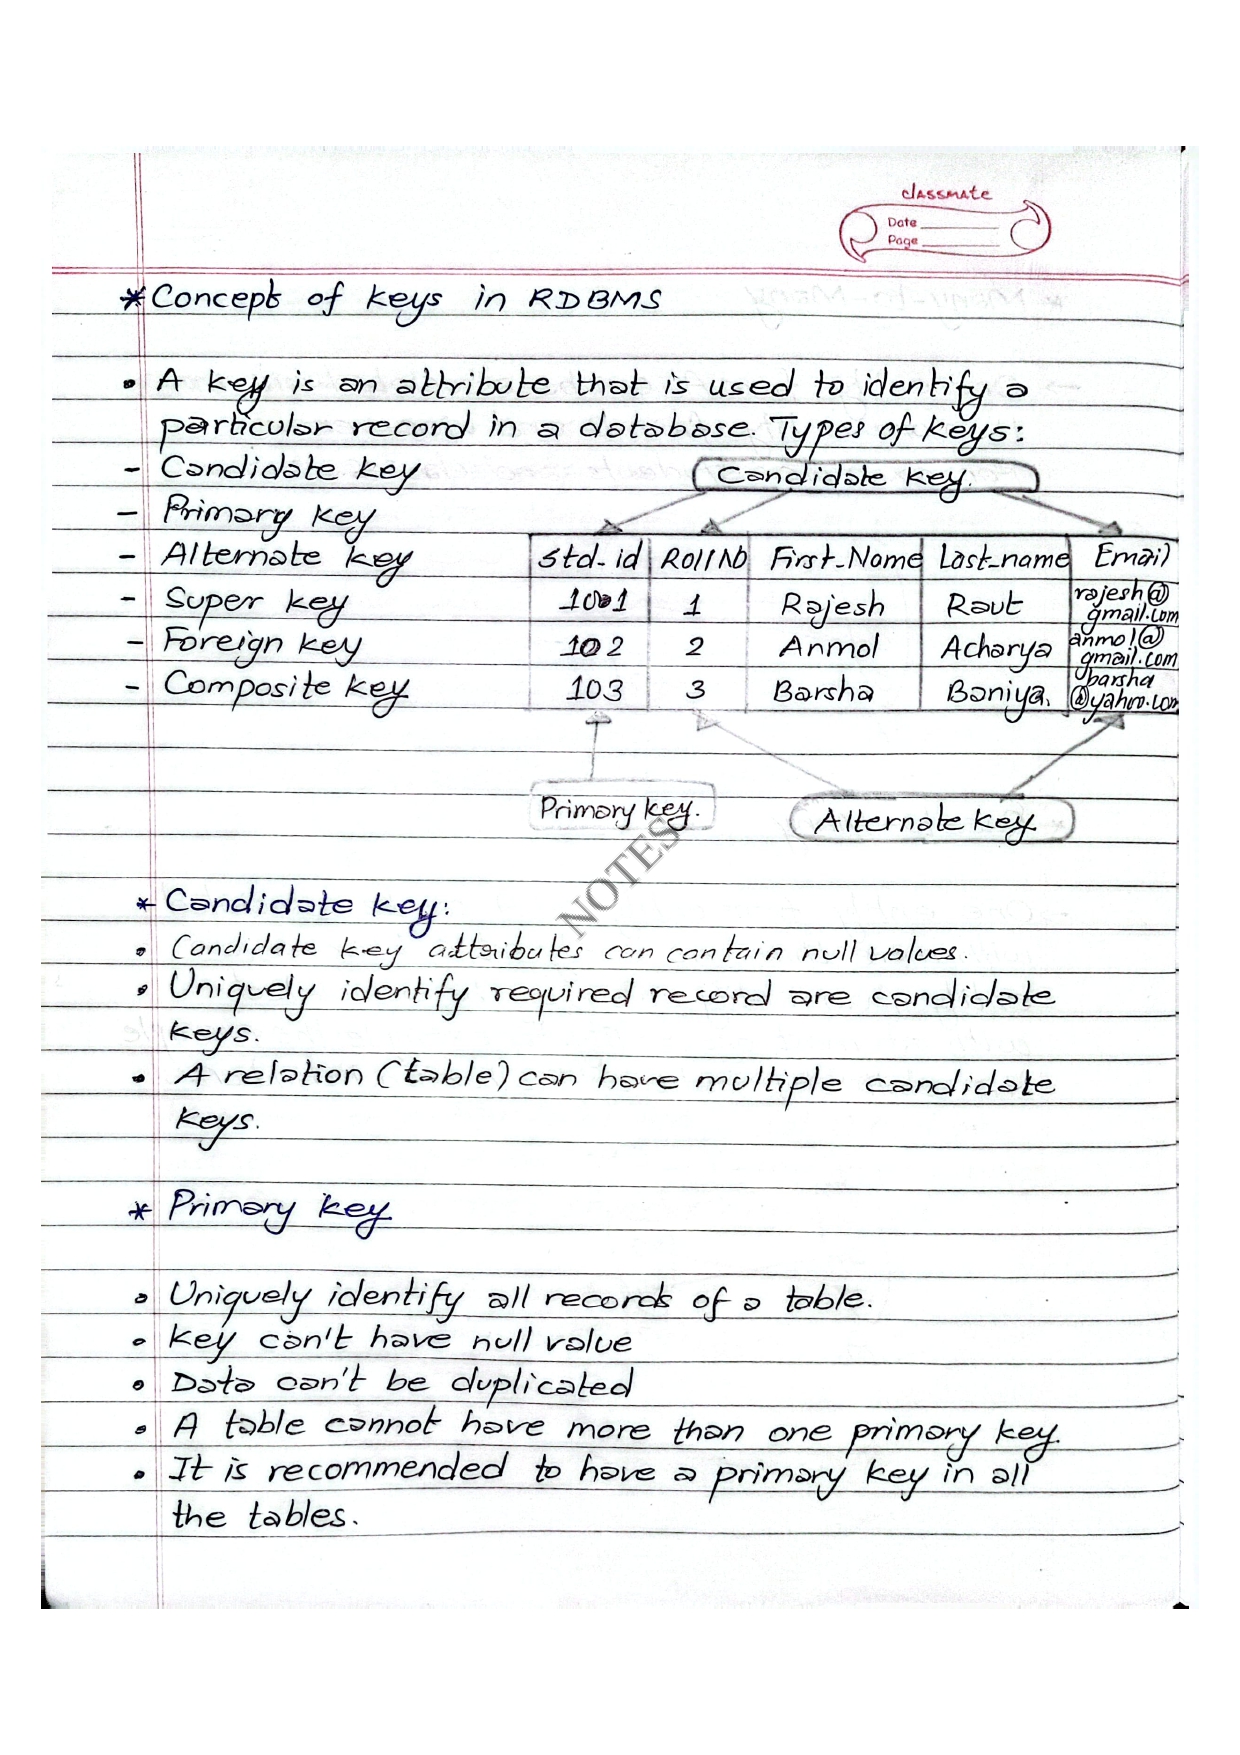 classmate
Date
Page
* Concept of keys in RDBMS
• A key is an attribute that is used to identify a
particular record in a database. Types of keys:
- Candidate key
- Primary key
- Alternate key
- Super key
- Foreign key
- Composite key
Candidate key.
Std_id Roll No First_Name Last_name Email
1001 1 Rajesh Raut rajesh@
gmail.com
102 2 Anmol Acharya anmol@
gmail.com
103 3 Barsha Baniya. barsha
@yahoo.com
Primary key.
Alternate key
NOTES
* Candidate key:
• Candidate key attributes can contain null values.
• Uniquely identify required record are candidate
keys.
• A relation (table) can have multiple candidate
keys.
* Primary key
• Uniquely identify all records of a table.
• Key can't have null value
• Data can't be duplicated
• A table cannot have more than one primary key.
• It is recommended to have a primary key in all
the tables.